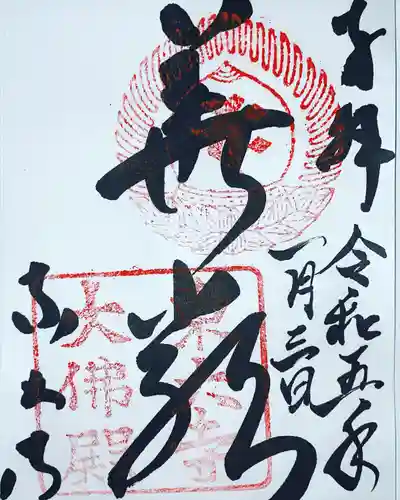 奉拝
令和五年
一月三日
華嚴
東大寺
東大寺
大佛殿